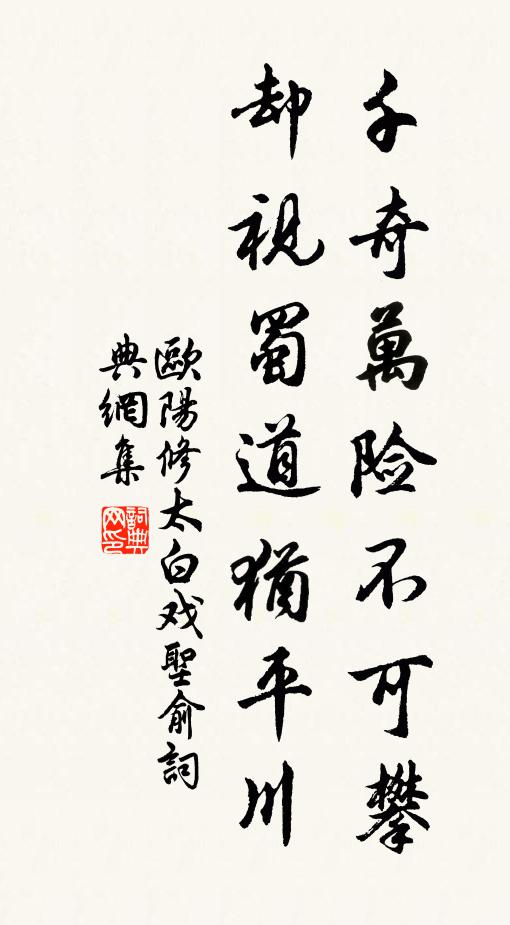 千奇萬險不可攀
却視蜀道猶平川
歐陽修太白戏聖俞詞
典網集
詞典网印